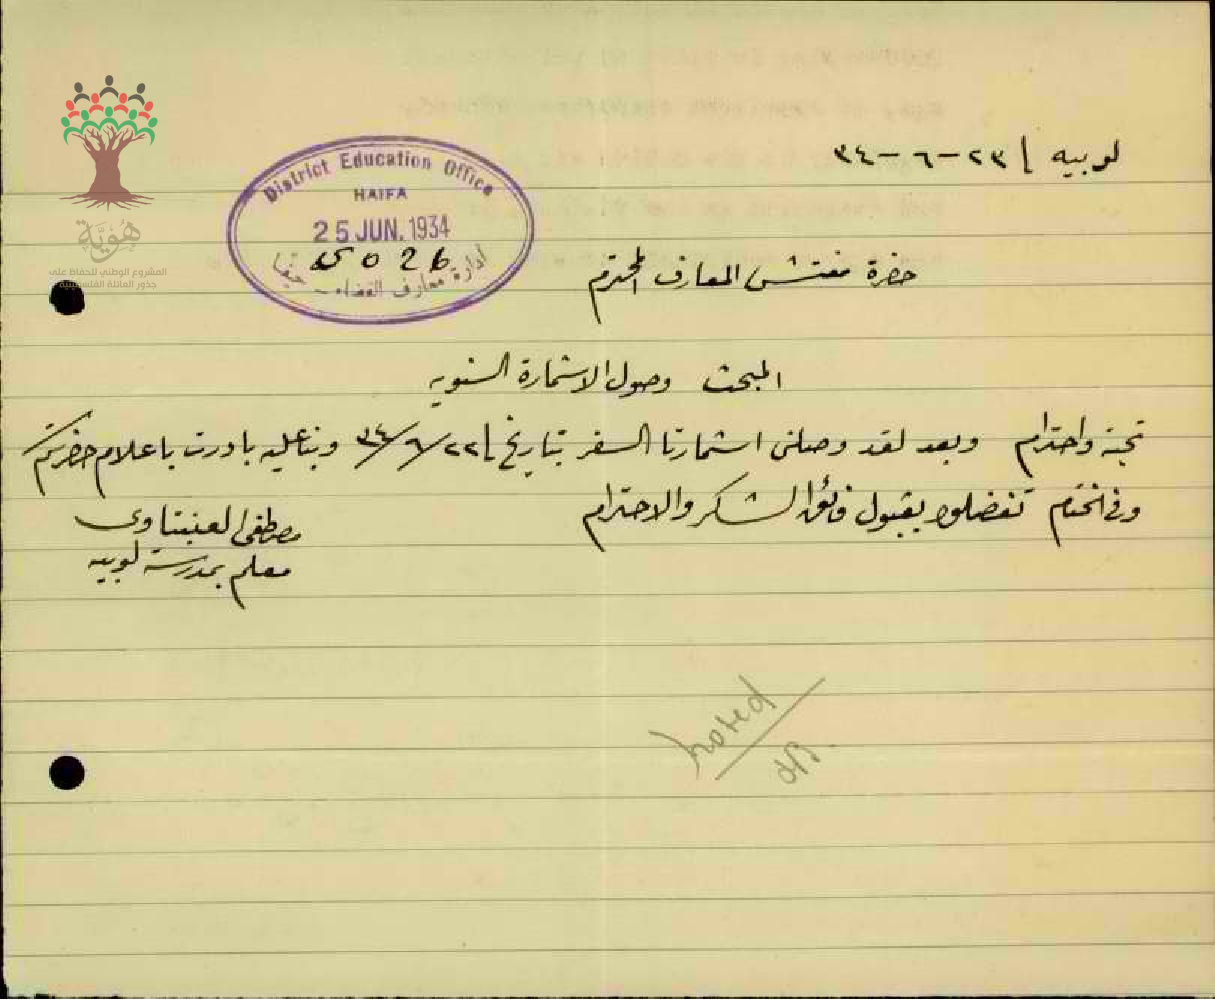 لوبيه / ٢٣-٦-٣٤
District Education Office
HAIFA
25 JUN. 1934
5026
ادارة معارف القضاء - حيفا
حضرة مفتش المعارف المحترم
المبحث وصول الاستمارة السنويه
تحية واحترام وبعد لقد وصلني استمارتا السفر بتاريخ ٢٢/٦/٣٤ وبناءعليه بادرت باعلام حضرتكم
وفي الختام تفضلوا بقبول فائق الشكر والاحترام
مصطفى العنبتاوي
معلم بمدرسة لوبيه
noted
هُوِيَّة
المشروع الوطني للحفاظ على
جذور العائلة الفلسطينية